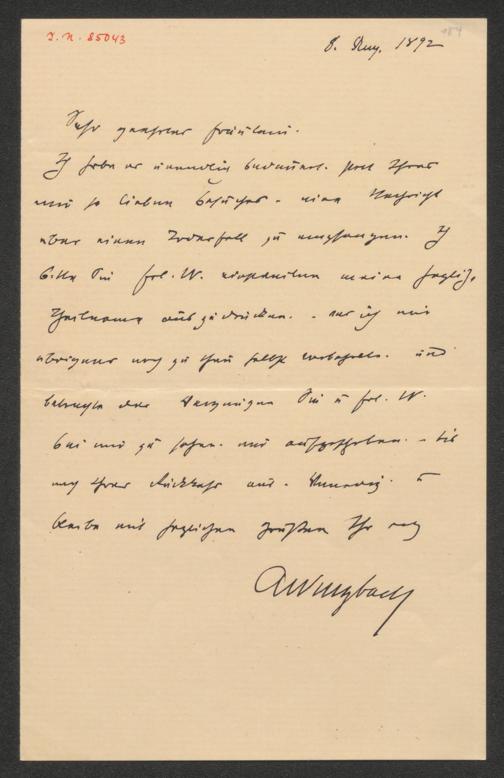 I. N. 85043
184
8. Aug. 1892
Sehr geehrtes Fräulein.
Ich habe es unendlich bedauert. statt Ihres
mir so lieben Besuches - eine Nachricht
über einen Todesfall zu empfangen. Ich
bitte Sie Frl. W. einstweilen meine herzliche
Theilnahme auszudrücken. - was ich mir
übrigens noch zu thun selbst vorbehalte. und
betrachte das Vergnügen Sie u Frl. W.
bei mir zu sehen. nur aufgeschoben. - bis
nach Ihrer Rückkehr aus - Venedig. u
bleibe mit herzlichen Grüßen Ihr
AWurzbach